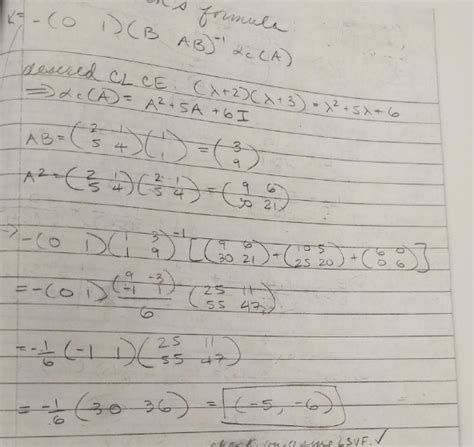 's formula
K = -(0 1)(B AB)⁻¹ αc(A)
desired CLCE: (λ+2)(λ+3) = λ²+5λ+6
⇒ αc(A) = A²+5A+6I
AB = (2 1 / 5 4)(1 / 1) = (3 / 9)
A² = (2 1 / 5 4)(2 1 / 5 4) = (9 6 / 30 21)
→ -(0 1)(1 3 / 1 9)⁻¹ [(9 6 / 30 21) + (10 5 / 25 20) + (6 0 / 0 6)]
= -(0 1) (9 -3 / -1 1)/6 (25 11 / 55 47)
= -1/6 (-1 1)(25 11 / 55 47)
= -1/6 (30 36) = (-5, -6)